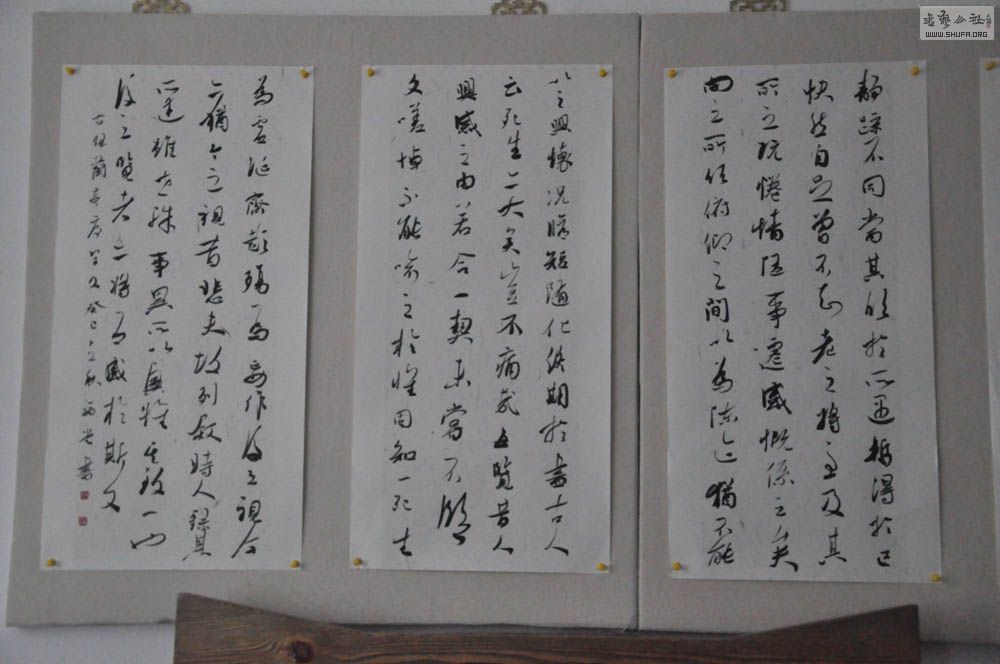 靜躁不同當其欣於所遇暫得於己
快然自足曾不知老之將至及其
所之既惓情隨事遷感慨係之矣
向之所欣俯仰之間以為陳迹猶不能
以之興懷況脩短隨化終期於盡古人
云死生亦大矣豈不痛哉每覽昔人
興感之由若合一契未嘗不臨
文嗟悼不能喻之於懷固知一死生
為虛誕齊彭殤為妄作後之視今
亦猶今之視昔悲夫故列敘時人錄其
所述雖世殊事異所以興懷其致一也
後之覽者亦將有感於斯文
右錄蘭亭序全文癸巳之秋書
書藝公社
WWW.SHUFA.ORG